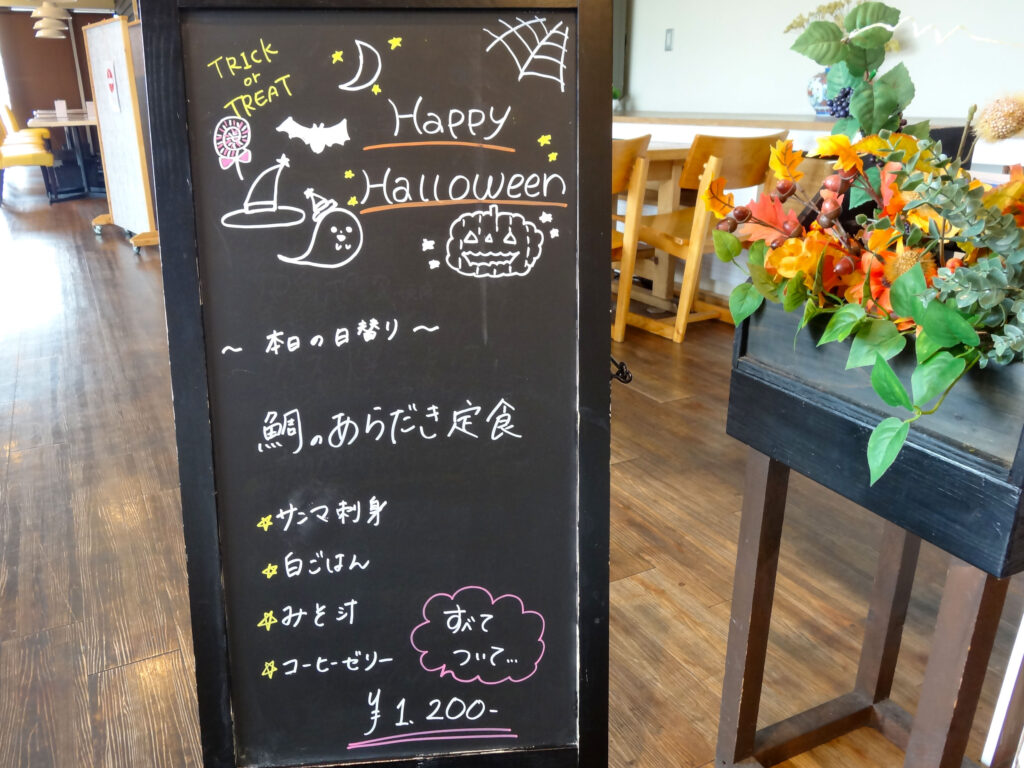 TRICK
or
TREAT
Happy
Halloween
～ 本日の日替り ～
鯛のあらだき定食
☆サンマ刺身
☆白ごはん
☆みそ汁
☆コーヒーゼリー
すべて
ついて…
¥1.200-